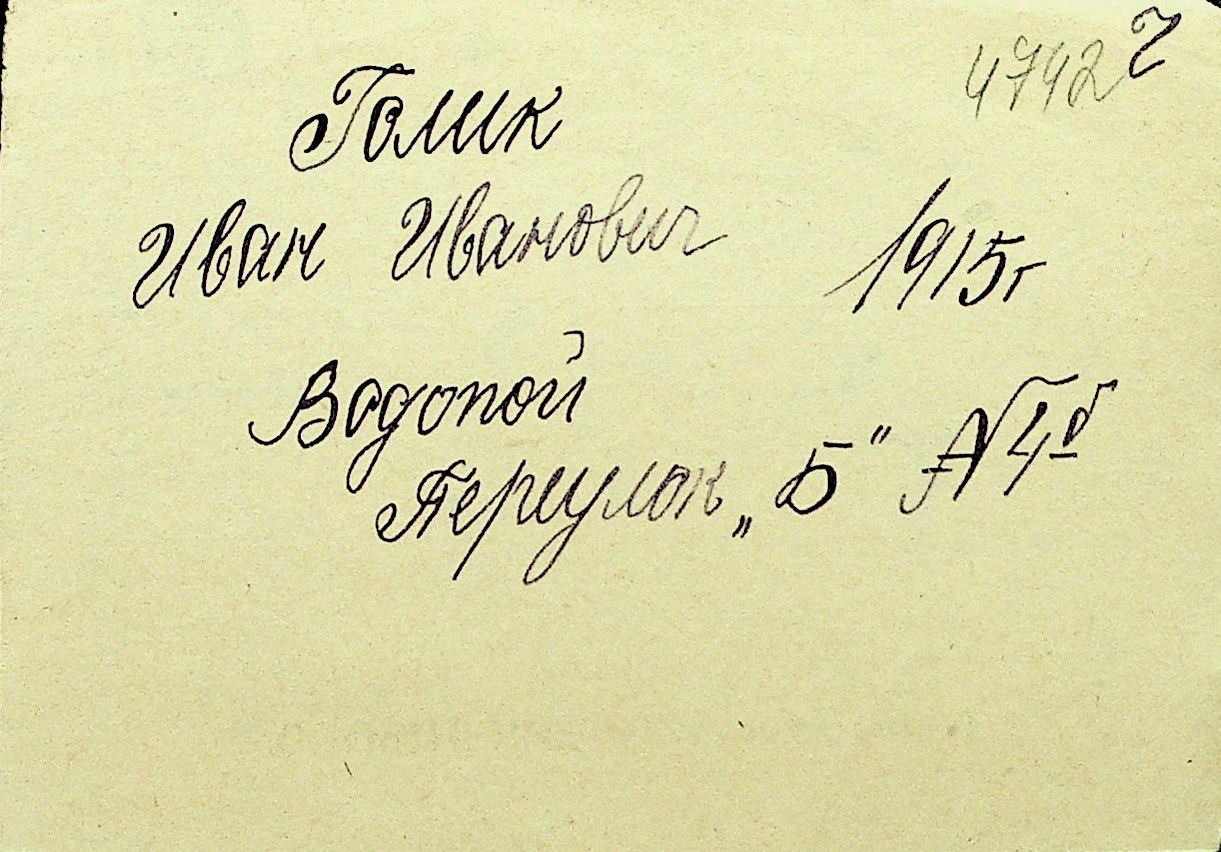 4742 г
Голик
Иван Иванович 1915г
Водопой
Переулок „Б" № 4б